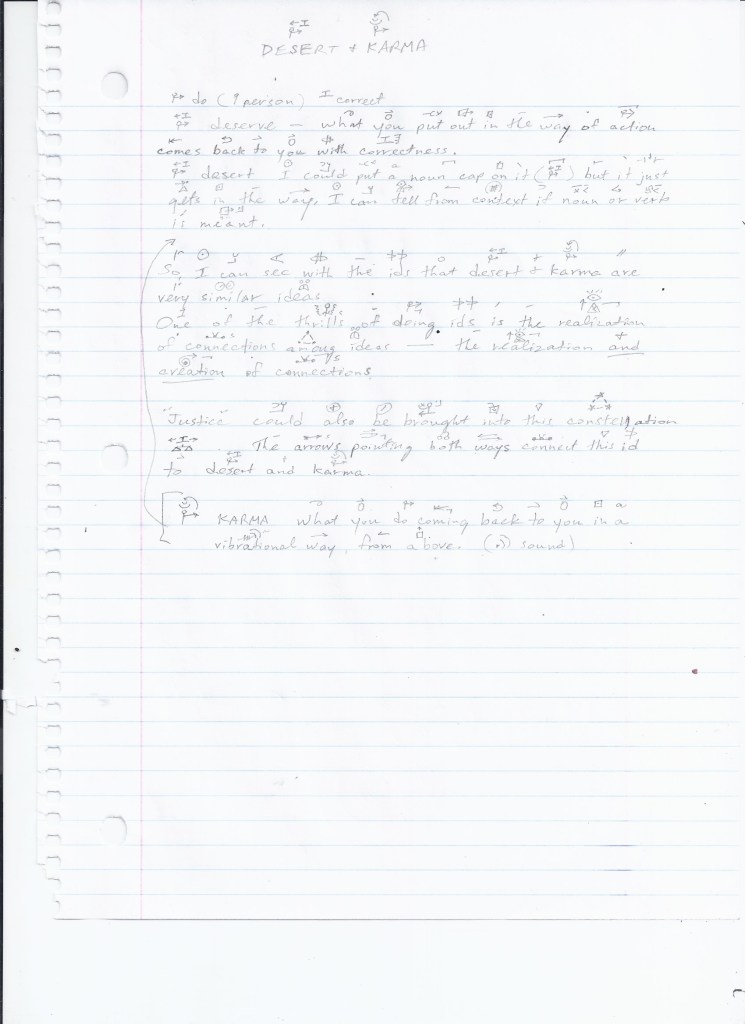 DESERT & KARMA
do (9 person) I correct
deserve — what you put out in the way of action
comes back to you with correctness.
desert I could put a noun cap on it ( ) but it just
gets in the way. I can tell from context if noun or verb
is meant.
So, I can see with the ids that desert & karma are
very similar ideas
One of the thrills of doing ids is the realization
of connections among ideas — the realization and
creation of connections.
"Justice" could also be brought into this constellation
The arrows pointing both ways connect this id
to desert and karma.
KARMA what you do coming back to you in a
vibrational way, from above. ( sound)